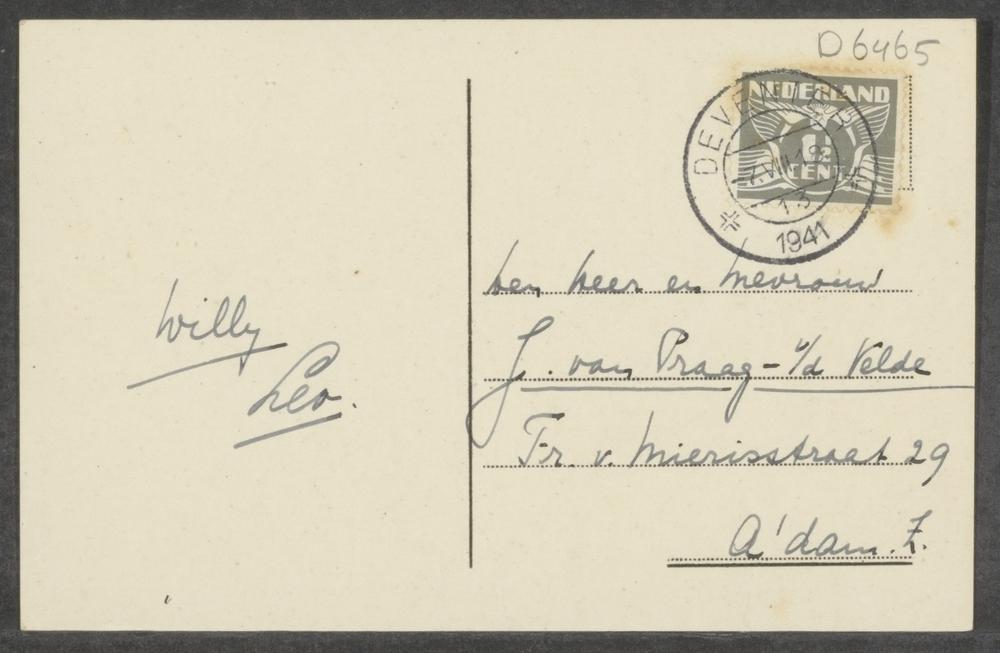 D6465
NEDERLAND
1½
CENT
DEVENTER
7.VIII.
13
1941
Willy
Leo.
den heer en Mevrouw
J. van Praag - v/d Velde
Fr. v. Mierisstraat 29
A'dam. Z.